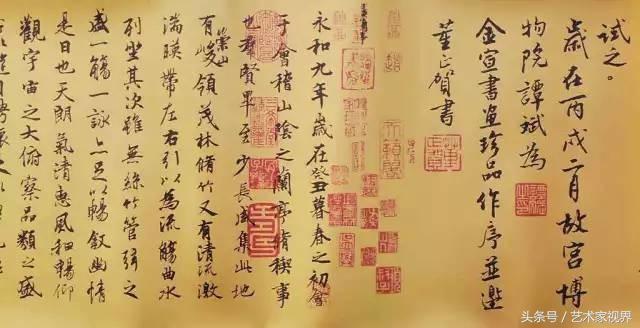 試之。
歲在丙戌二月故宮博
物院譚斌為
金宣書畫珍品作序並邀
董正賀書
永和九年歲在癸丑暮春之初會
于會稽山陰之蘭亭脩稧事
也羣賢畢至少長咸集此地
有崇山峻領茂林脩竹又有清流激
湍暎帶左右引以為流觴曲水
列坐其次雖無絲竹管弦之
盛一觴一詠亦足以暢敘幽情
是日也天朗氣清惠風和暢仰
觀宇宙之大俯察品類之盛
头条号 / 艺术家视界